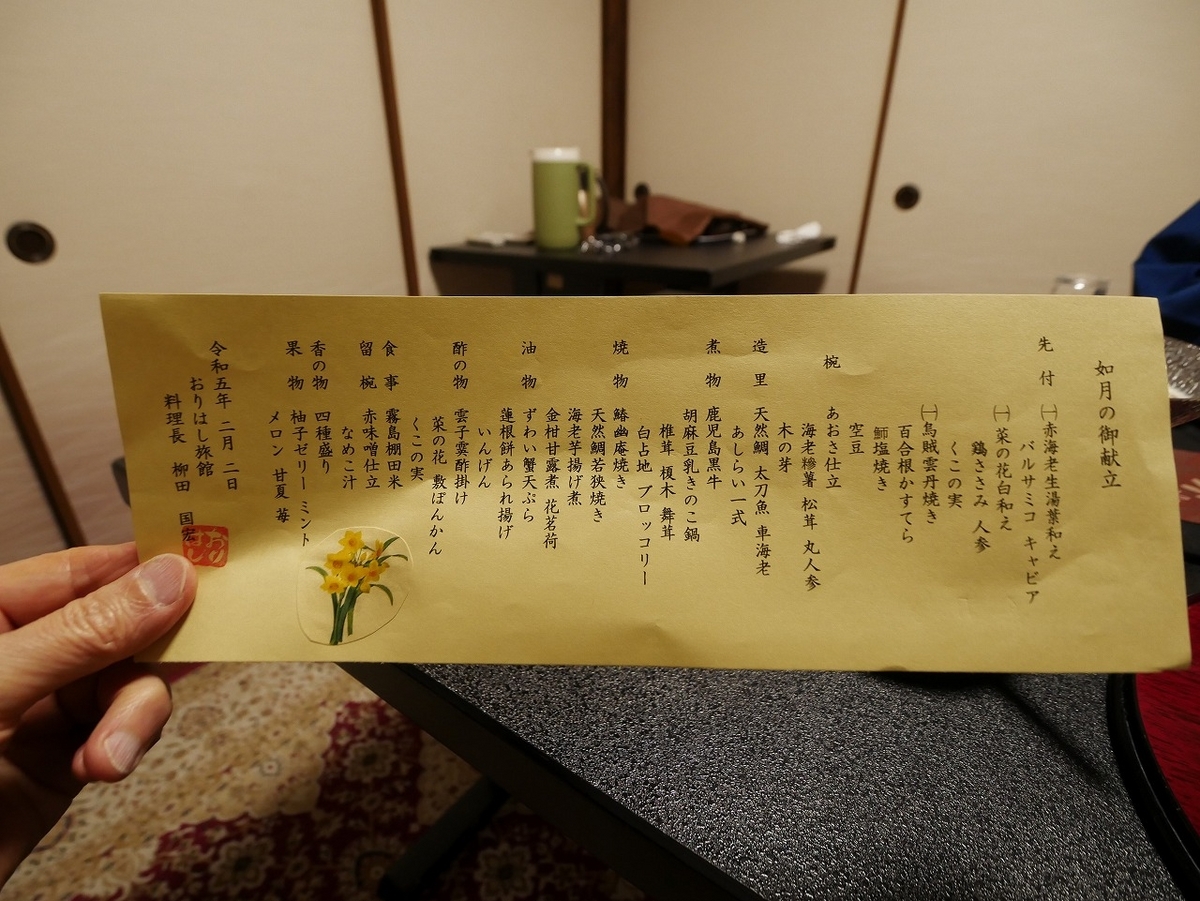 如月の御献立
先付 ㈠赤海老生湯葉和え
バルサミコ キャビア
㈠菜の花白和え
鶏ささみ 人参
くこの実
㈠烏賊雲丹焼き
百合根かすてら
鰤塩焼き
空豆
椀 あおさ仕立
海老糝薯 松茸 丸人参
木の芽
造里 天然鯛 太刀魚 車海老
あしらい一式
煮物 鹿児島黒牛
胡麻豆乳きのこ鍋
椎茸 榎木 舞茸
白占地 ブロッコリー
焼物 鰆幽庵焼き
天然鯛若狭焼き
海老芋揚げ煮
金柑甘露煮 花茗荷
油物 ずわい蟹天ぷら
蓮根餅あられ揚げ
いんげん
酢の物 雲子霙酢掛け
菜の花 敷ぽんかん
くこの実
食事 霧島棚田米
留椀 赤味噌仕立
なめこ汁
香の物 四種盛り
果物 柚子ゼリー ミント
メロン 甘夏 苺
令和五年 二月 二日
おりはし旅館
料理長 柳田 国宏